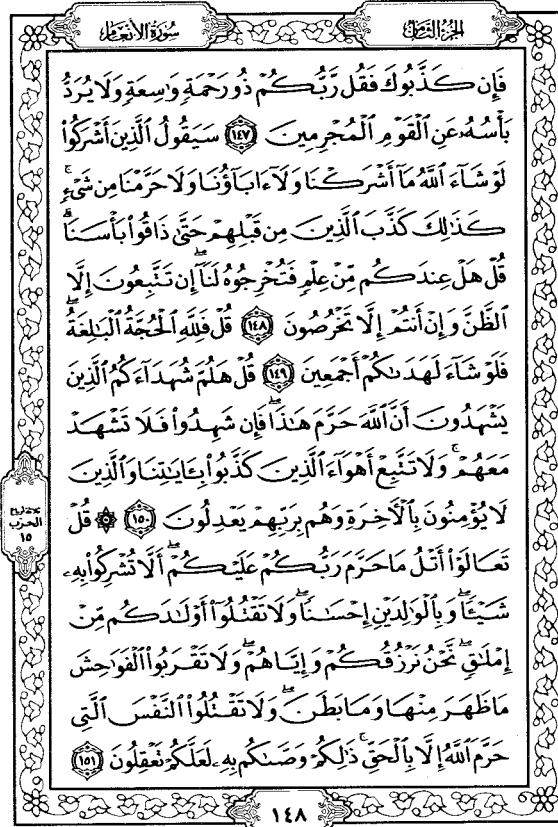 سُورَةُ الأَنْعَامِ
الجُزْءُ الثَّامِنُ
فَإِن كَذَّبُوكَ فَقُل رَّبُّكُمْ ذُو رَحْمَةٍ وَٰسِعَةٍ وَلَا يُرَدُّ
بَأْسُهُۥ عَنِ ٱلْقَوْمِ ٱلْمُجْرِمِينَ ١٤٧ سَيَقُولُ ٱلَّذِينَ أَشْرَكُوا۟
لَوْ شَآءَ ٱللَّهُ مَآ أَشْرَكْنَا وَلَآ ءَابَآؤُنَا وَلَا حَرَّمْنَا مِن شَىْءٍ ۚ
كَذَٰلِكَ كَذَّبَ ٱلَّذِينَ مِن قَبْلِهِمْ حَتَّىٰ ذَاقُوا۟ بَأْسَنَا ۗ
قُلْ هَلْ عِندَكُم مِّنْ عِلْمٍ فَتُخْرِجُوهُ لَنَآ ۖ إِن تَتَّبِعُونَ إِلَّا
ٱلظَّنَّ وَإِنْ أَنتُمْ إِلَّا تَخْرُصُونَ ١٤٨ قُلْ فَلِلَّهِ ٱلْحُجَّةُ ٱلْبَٰلِغَةُ ۖ
فَلَوْ شَآءَ لَهَدَىٰكُمْ أَجْمَعِينَ ١٤٩ قُلْ هَلُمَّ شُهَدَآءَكُمُ ٱلَّذِينَ
يَشْهَدُونَ أَنَّ ٱللَّهَ حَرَّمَ هَٰذَا ۖ فَإِن شَهِدُوا۟ فَلَا تَشْهَدْ
مَعَهُمْ ۚ وَلَا تَتَّبِعْ أَهْوَآءَ ٱلَّذِينَ كَذَّبُوا۟ بِـَٔايَٰتِنَا وَٱلَّذِينَ
لَا يُؤْمِنُونَ بِٱلْـَٔاخِرَةِ وَهُم بِرَبِّهِمْ يَعْدِلُونَ ١٥٠ ۞ قُلْ
تَعَالَوْا۟ أَتْلُ مَا حَرَّمَ رَبُّكُمْ عَلَيْكُمْ ۖ أَلَّا تُشْرِكُوا۟ بِهِۦ
شَيْـًٔا ۖ وَبِٱلْوَٰلِدَيْنِ إِحْسَٰنًا ۖ وَلَا تَقْتُلُوٓا۟ أَوْلَٰدَكُم مِّنْ
إِمْلَٰقٍ ۖ نَّحْنُ نَرْزُقُكُمْ وَإِيَّاهُمْ ۖ وَلَا تَقْرَبُوا۟ ٱلْفَوَٰحِشَ
مَا ظَهَرَ مِنْهَا وَمَا بَطَنَ ۖ وَلَا تَقْتُلُوا۟ ٱلنَّفْسَ ٱلَّتِى
حَرَّمَ ٱللَّهُ إِلَّا بِٱلْحَقِّ ۚ ذَٰلِكُمْ وَصَّىٰكُم بِهِۦ لَعَلَّكُمْ تَعْقِلُونَ ١٥١
الحزب
١٥
١٤٨